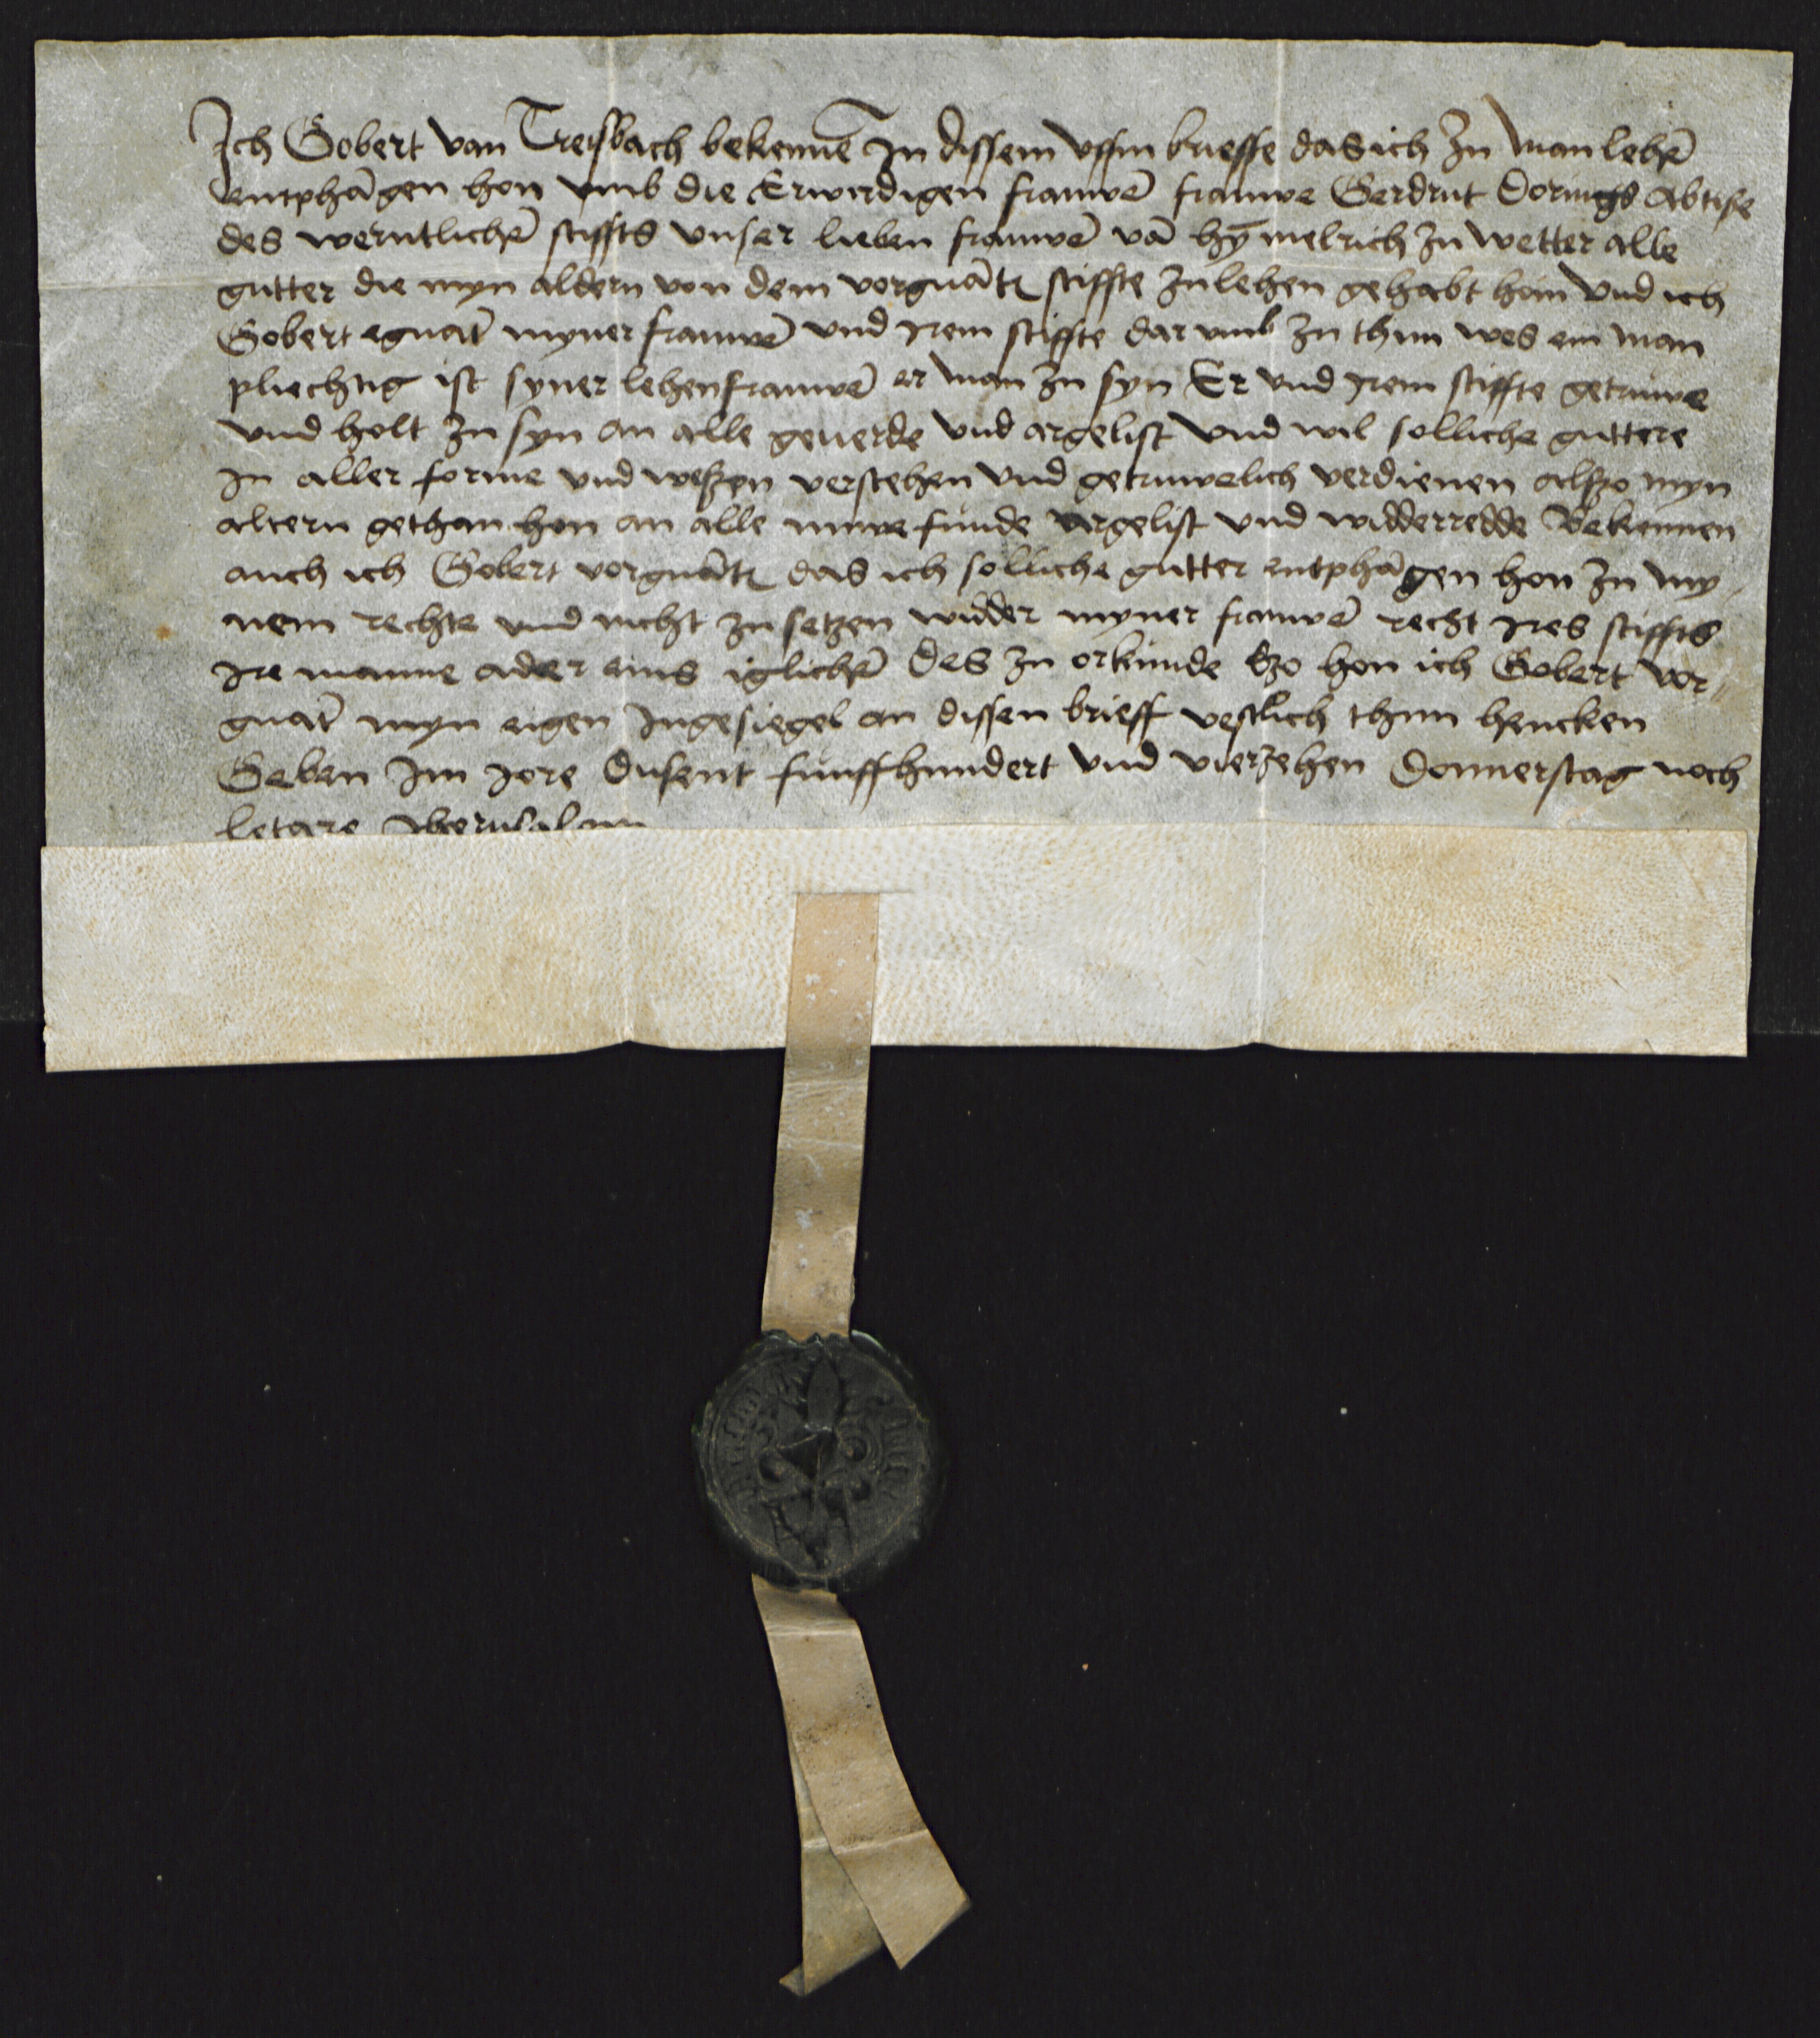 Ich Gobert van Treysbach bekennē In dissem uffin brieffe das ich zu man lehē
entphāgen hon umb die Erwirdigen frauwē frauwe Gerdrut Dorings Abtise
des werntlichē stiffts unser lieben frauwē vā hȳmelrich zu wetter alle
gutter die myn aldern von dem vorgnāt stiffte zu lehen gehabt hoin und ich
Gobert egnāt myner frauwē und irem stiffte dar umb zu thun wes ein man
pliechtig ist syner lehenfrauwē er man zu syn Er und irem stiffte getruwe
und holt zu syn an alle geuerde und argelist und wil solliche guttere
In aller forme und weszen verstehen und getruwelich verdienen alszo myn
altern gethan hon an alle nuwe funde argelist und widderredde Bekennen
auch ich Gobert vorgnāt das ich solliche gutter entphāgen hon zu my
nem rechte und nicht zu setzen widder myner frauwē recht ires stiffts
ire manne ader eins iglichē Des zu orkunde szo hon ich Gobert vor
gnāt myn eigen Ingesiegel an dissen brieff vestlich thun hencken
Geben Im jore dusent funffhundert und vierzehen Donnerstag noch
letare Jherusalem